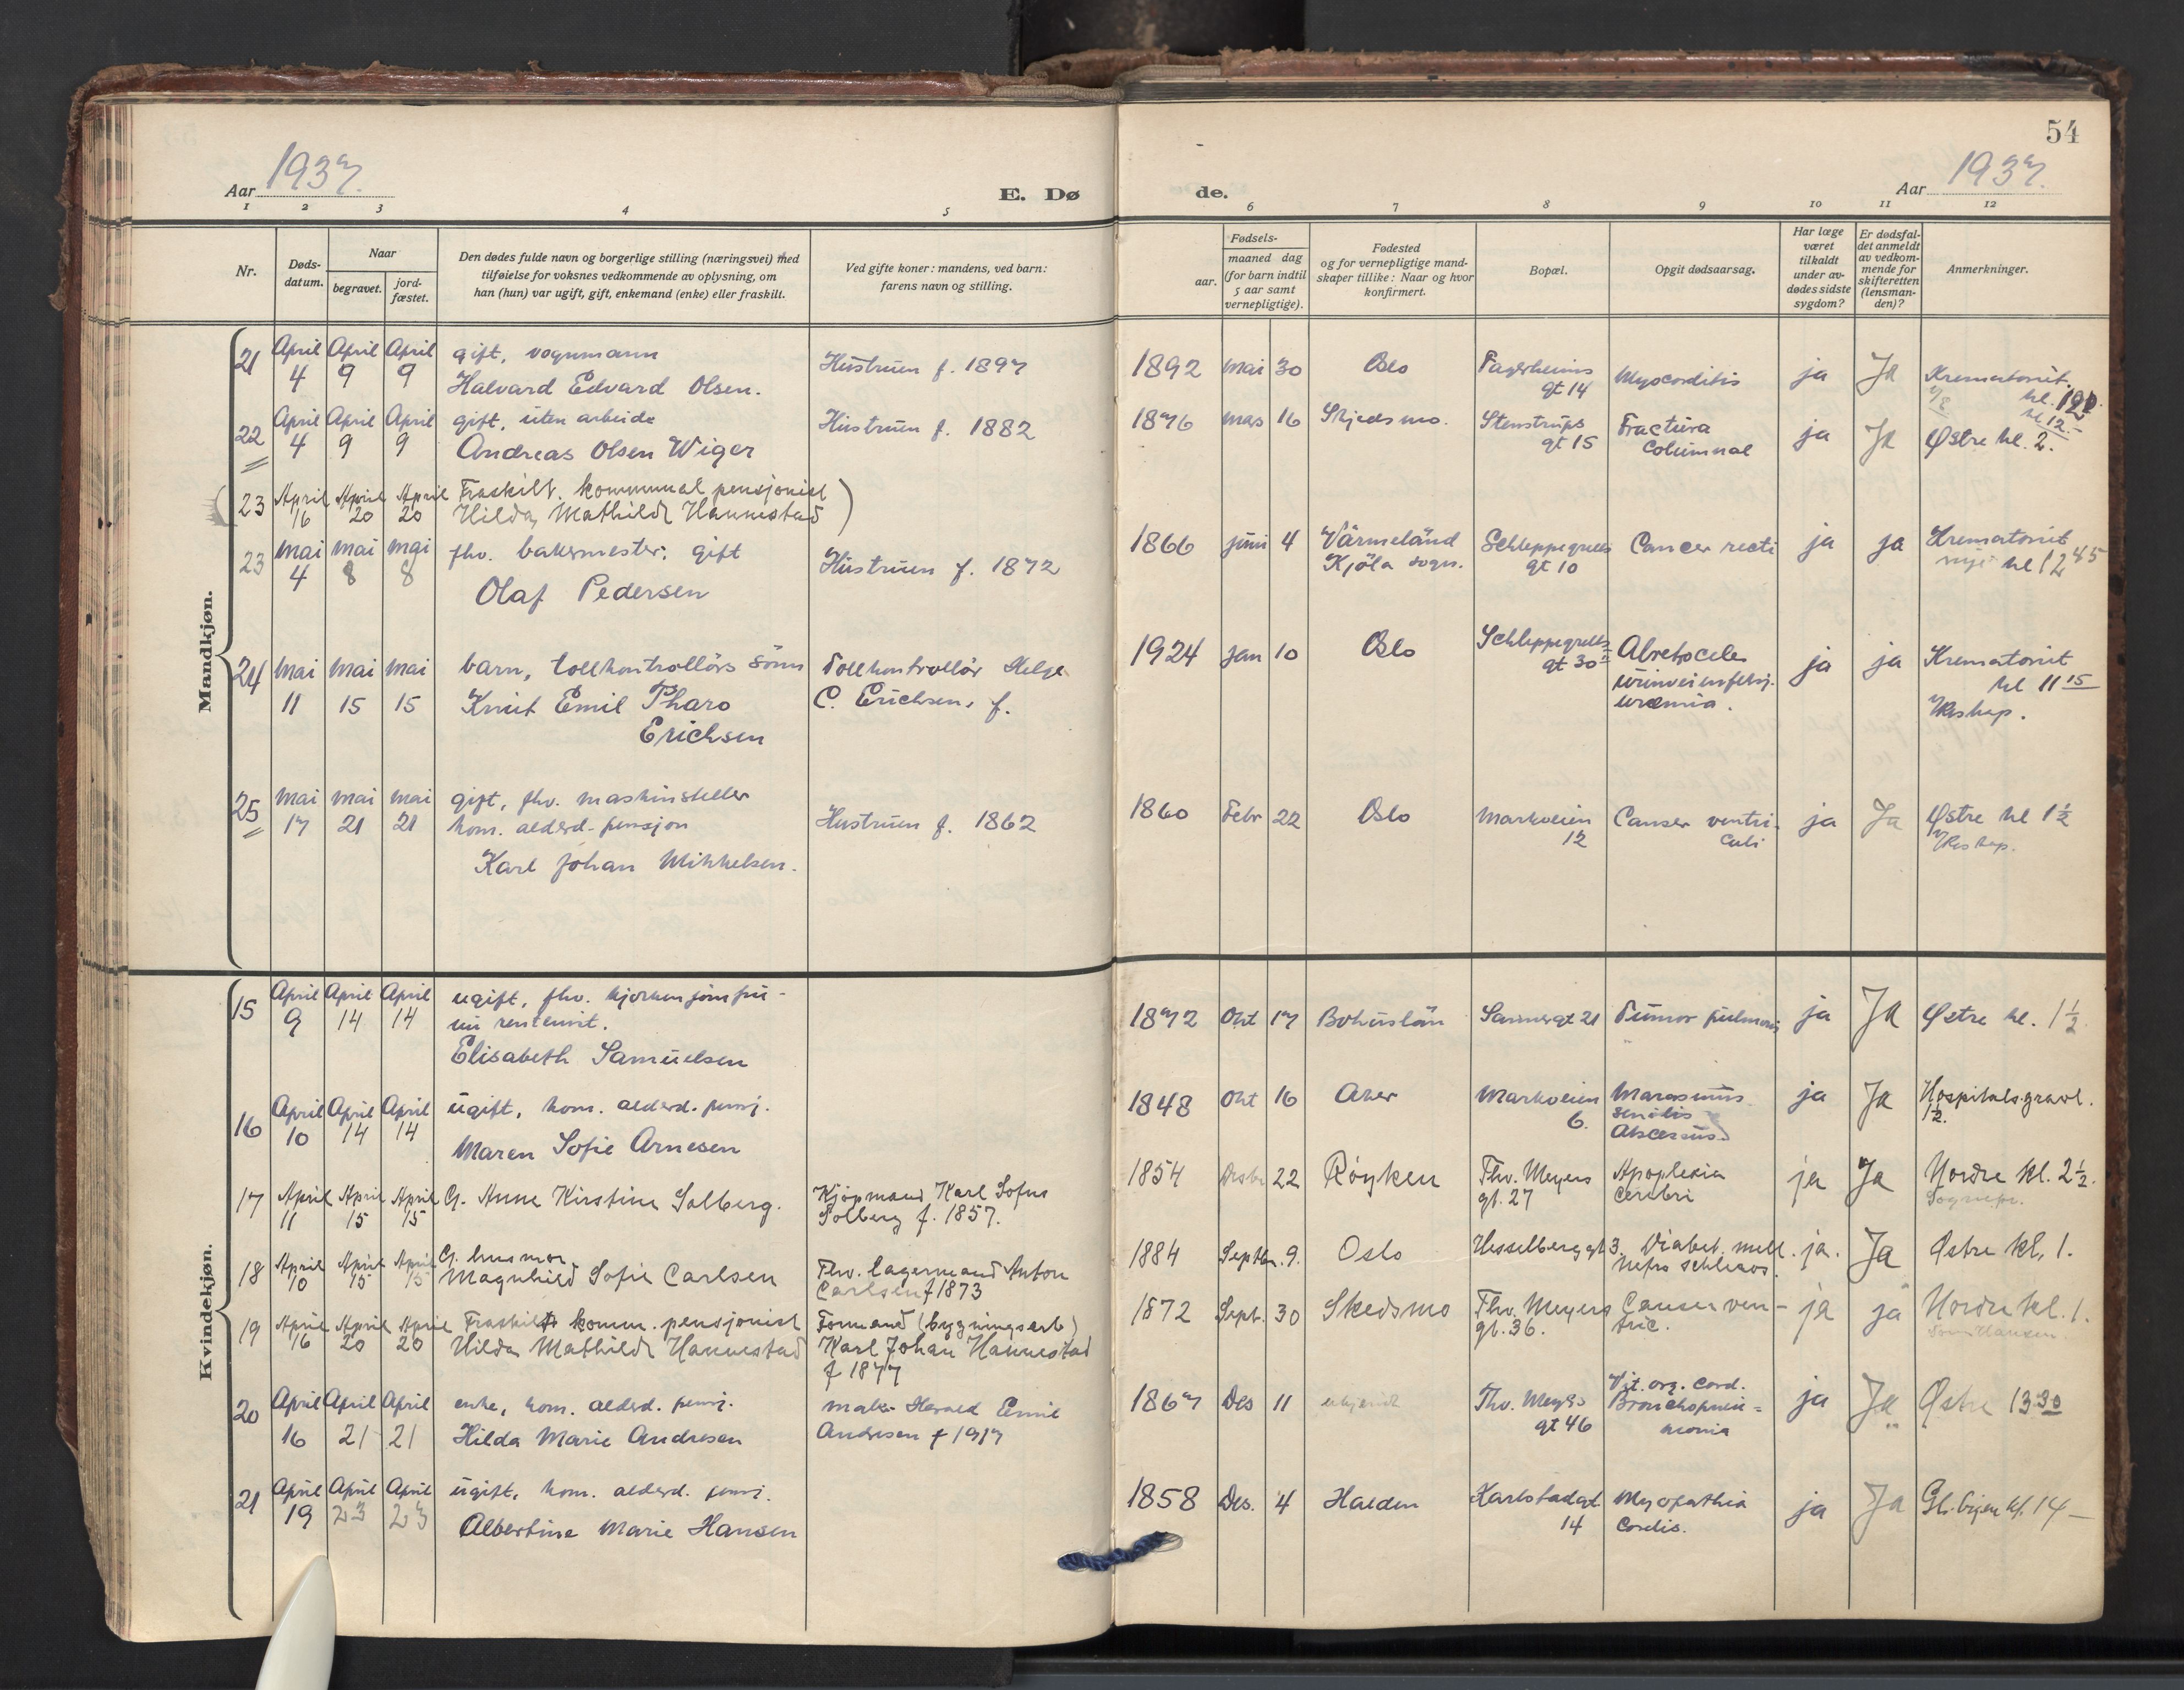 54
Aar 1937.
E. Dø
de.
Aar 1937.
1 2 3 4 5 6 7 8 9 10 11 12
Nr.
Døds-
datum.
Naar
begravet.
jord-
fæstet.
Den dødes fulde navn og borgerlige stilling (næringsvei) med
tilføielse for voksnes vedkommende av oplysning, om
han (hun) var ugift, gift, enkemand (enke) eller fraskilt.
Ved gifte koner: mandens, ved barn:
farens navn og stilling.
Fødsels-
aar.
maaned dag
(for barn indtil
5 aar samt
vernepligtige).
Fødested
og for vernepligtige mand-
skaper tillike: Naar og hvor
konfirmert.
Bopæl.
Opgit dødsaarsag.
Har læge
været
tilkaldt
under av-
dødes sidste
sygdom?
Er dødsfal-
det anmeldt
av vedkom-
mende for
skifteretten
(lensman-
den)?
Anmerkninger.
Mandkjøn.
21 April 4 April 9 April 9
gift, vognmann
Halvard Edvard Olsen.
Hustruen f. 1897
1892 mai 30 Oslo
Fagerheims
gt 14
Myocorditis
ja Ja
Krematoriet.
22 April 4 April 9 April 9
gift, uten arbeide
Andreas Olsen Wiger
Hustruen f. 1882
1876 mars 16 Skjedsmo.
Stenstrups
gt 15
Fractura
Columnal
ja Ja
kl. 12.-
Østre kl. 2.
23 April 16 April 20 April 20
Fraskilt. kommunal pensjonist
Hilda Mathilde Hannestad
23 mai 4 mai 8 mai 8
fhv. bakermester, gift
Olaf Pedersen
Hustruen f. 1872
1866 juni 4
Värmeländ
Kjöla sogn.
Schleppegrells
gt 10
Cancer recti
ja ja
Krematoriet
nye kl 12 45
24 mai 11 mai 15 mai 15
barn, tollkontrollörs sönn
Knut Emil Pharo
Erichsen
Tollkontrollör Helge
C. Erichsen, f.
1924 jan 10 Oslo
Schleppegrells
gt 30
urinveisinfeksj.
uræmia.
ja ja
Krematoriet
kl 11 15
Reskap.
25 mai 17 mai 21 mai 21
gift, fhv. maskinsteller
kom. alderd-pensjon
Karl Johan Mikkelsen.
Hustruen f. 1862
1860 Febr 22 Oslo
Markveien
12
Canser ventri-
culi
ja Ja
Østre kl 1 1/2
Reskap.
Kvindekjøn.
15 April 9 April 14 April 14
Elisabeth Samuelsen
1872 Okt 17 Bohuslän
Sannergt 21
Tumor pulmonis
ja Ja
Østre kl. 1 1/2
16 April 10 April 14 April 14
ugift, kom. alderd. pensj.
Maren Sofie Arnesen
1848 Okt 16 Aker
Markveien
6.
Marasmus
senilis
Abcessus
ja Ja
Hospitalsgravl.
1 1/2.
17 April 11 April 15 April 15
G. Anne Kirstine Solberg.
Kjöpmand Karl Sofus
Solberg f. 1857.
1854 Desbr 22 Röyken
Thv. Meyers
gt. 27
Apoplexia
cerebri
ja Ja
Nordre kl. 2 1/2.
Sognepr.
18 April 10 April 15 April 15
G. husmor
Magnhild Sofie Carlsen
Fhv. lagermand Anton
Carlsen f 1873
1884 Septbr. 9. Oslo
Hesselberggt 3.
Diabet. mell.
Nefro schleros.
ja. Ja
Østre kl. 1.
19 April 16 April 20 April 20
Fraskilt komm. pensjonist
Hilda Mathilde Hannestad
Formand (bygningsarb)
Karl Johan Hannestad
f 1877
1872 Sept. 30 Skedsmo
Thv. Meyers
gt. 36.
Canser ven-
tric.
ja ja
Nordre kl. 1.
Hansen.
20 April 16 April 21 April 21
enke, kom. alderd. pensj.
Hilda Marie Andresen
maler Harald Emil
Andresen † 1917
1867 Des 11 ukjendt
Thv. Meyers
gt 46
Vit. org. cord.
Bronchopneu=
monia
ja Ja
Østre 13 30
21 April 19 April 23 April 23
ugift, kom. alderd. pensj.
Albertine Marie Hansen
1858 Des. 4 Halden
Karlstadgt.
14
Myopathia
Cordis.
ja Ja
kl. 14 –